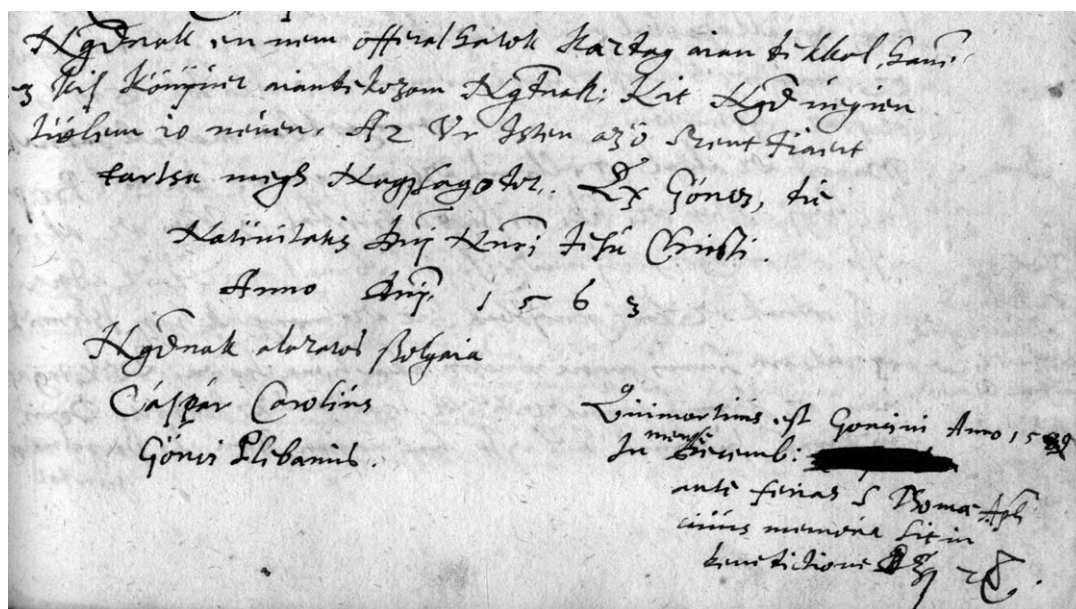 Ngdnak en nem offeralhatok Hartag aian dekkol, hanē
ez kis Könyuet aiandekozom Ngdnak: Kit Ngd uegien
tüolem io neuen. Az Vr Isten az ö Szent Fiaert
tartsa megh Nagysagodot. Ex Göncz, die
Natiuitatis Dnj Nrĩ Jesu Christi.
Anno Dnj. 1563
Ngdnak alazatos szolgaia
Cáspár Carolius
Gönci Plebanus.
Qui mortuus est Goncini Anno 15
In mense Decemb:
ante ferias S Thomæ Apli
cuius memoria sit in
benedictione